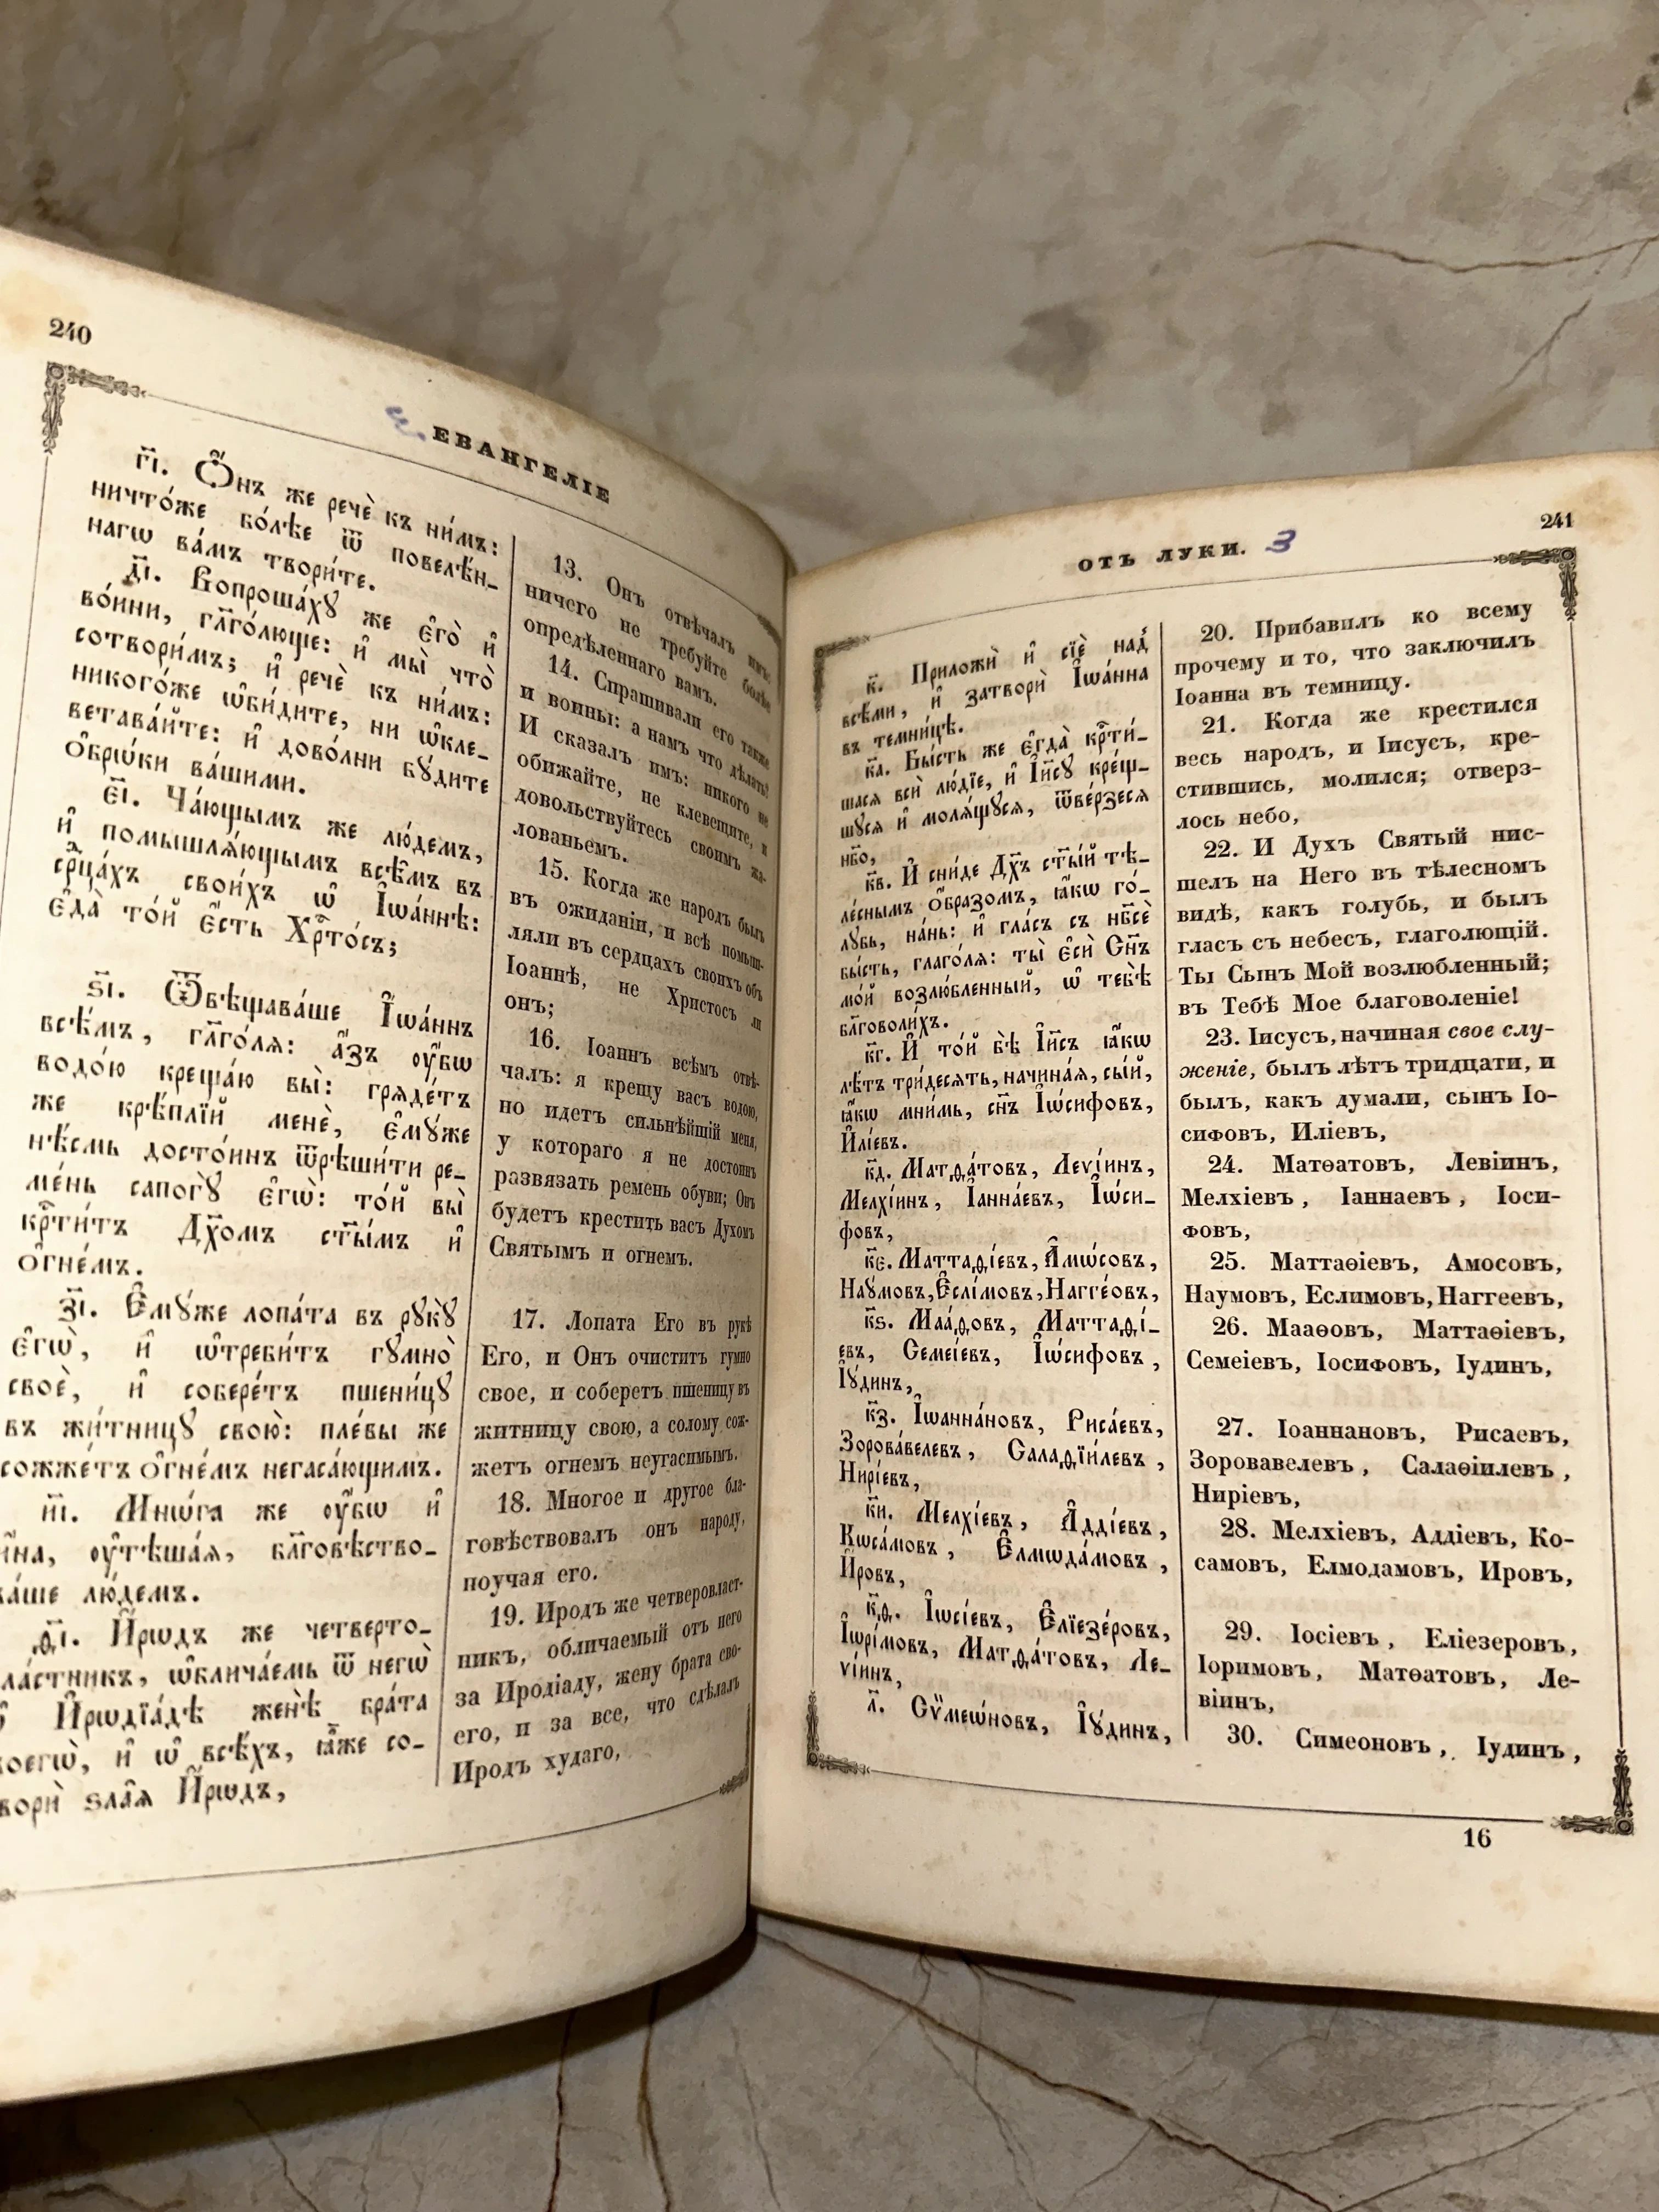 240
ЕВАНГЕЛІЕ
г҃і. Ѻ҆́нъ же речѐ къ ни̑мъ:
ничто́же бо́лѣе ѿ повелѣ́н-
нагѡ ва́мъ твори́те.
д҃і. Вопроша́хꙋ же є҆го̀ и҆
во́ини, гл҃го́люще: и҆ мы̀ что̀
сотвори́мъ; и҆ речѐ къ ни̑мъ:
никого́же ѡ҆би́дите, ни ѡ҆кле-
ветава́йте: и҆ дово́лни бꙋ́дите
ѻ҆брѡ́ки ва́шими.
є҃і. Ча́ющымъ же лю́демъ,
и҆ помышлѧ́ющымъ всѣ̑мъ въ
срⷣца́хъ свои́хъ ѡ҆ І҆ѡа́ннѣ:
є҆да̀ то́й є҆́сть Хрⷭ҇то́съ;
ѕ҃і. Ѿвѣщава́ше І҆ѡа́ннъ
всѣ́мъ, гл҃го́лѧ: а҆́зъ ᲂу҆́бѡ
водо́ю креща́ю вы̀: грѧде́тъ
же крѣ́плїй менѐ, є҆мꙋ́же
нѣ́смь досто́инъ ѿрѣши́ти ре-
ме́нь сапогꙋ̀ є҆гѡ̀: то́й вы̀
крⷭ҇ти́тъ Дх҃омъ ст҃ы́мъ и҆
ѻ҆гне́мъ.
з҃і. Є҆мꙋ́же лопа́та въ рꙋкꙋ̀
є҆гѡ̀, и҆ ѡ҆треби́тъ гꙋмно̀
своѐ, и҆ собере́тъ пшени́цꙋ
въ жи́тницꙋ свою̀: пле́вы же
сожже́тъ ѻ҆гне́мъ негаса́ющимъ.
и҃і. Мнѡ́га же ᲂу҆́бѡ и҆
и҆́на, ᲂу҆тѣша́ѧ, бл҃говѣство-
ва́ше лю́демъ.
ѳ҃і. И҆́рѡдъ же четверто-
вла́стникъ, ѡ҆блича́емь ѿ негѡ̀
И҆рѡдїа́дѣ женѣ̀ бра́та
своегѡ̀, и҆ ѡ҆ всѣ́хъ, ꙗ҆̀же со-
творѝ ѕла̑ѧ И҆́рѡдъ,
13. Онъ отвѣчалъ имъ:
ничего не требуйте болѣе
опредѣленнаго вамъ.
14. Спрашивали его также
и воины: а намъ что дѣлать?
И сказалъ имъ: никого не
обижайте, не клевещите, и
довольствуйтесь своимъ жа-
лованьемъ.
15. Когда же народъ былъ
въ ожиданіи, и всѣ помыш-
ляли въ сердцахъ своихъ объ
Іоаннѣ, не Христосъ ли
онъ;
16. Іоаннъ всѣмъ отвѣ-
чалъ: я крещу васъ водою,
но идетъ сильнѣйшій меня,
у котораго я не достоинъ
развязать ремень обуви; Онъ
будетъ крестить васъ Духомъ
Святымъ и огнемъ.
17. Лопата Его въ рукѣ
Его, и Онъ очиститъ гумно
свое, и соберетъ пшеницу въ
житницу свою, а солому сож-
жетъ огнемъ неугасимымъ.
18. Многое и другое бла-
говѣствовалъ онъ народу,
поучая его.
19. Иродъ же четверовласт-
никъ, обличаемый отъ него
за Иродіаду, жену брата сво-
его, и за все, что сдѣлалъ
Иродъ худаго,
241
ОТЪ ЛУКИ. 3
к҃. Приложѝ и҆ сїѐ над̾
всѣ́ми, и҆ затворѝ І҆ѡа́нна
въ темни́цѣ.
к҃а. Бы́сть же є҆гда̀ крⷭ҇ти́-
шасѧ всѝ лю́дїе, и҆ І҆и҃сꙋ кре́щ-
шꙋсѧ и҆ молѧ́щꙋсѧ, ѿве́рзесѧ
нб҃о,
к҃в. И҆ сни́де Дх҃ъ ст҃ы́й тѣ-
ле́снымъ ѻ҆́бразомъ, ꙗ҆́кѡ го́-
лꙋбь, на́нь: и҆ гла́съ съ нб҃сѐ
бы́сть, глаго́лѧ: ты̀ є҆сѝ Сн҃ъ
мо́й возлю́бленный, ѡ҆ тебѣ̀
бл҃говоли́хъ.
к҃г. И҆ то́й бѣ̀ І҆и҃съ ꙗ҆́кѡ
лѣ́тъ три́десѧть, начина́ѧ, сы́й,
ꙗ҆́кѡ мни́мь, сн҃ъ І҆ѡ́сифовъ,
И҆лі́евъ.
к҃д. Матѳа́товъ, Леѵі́инъ,
Мелхі́инъ, І҆анна́евъ, І҆ѡ́си-
фовъ,
к҃є. Маттаѳі́евъ, А҆мѡ́совъ,
Наꙋ́мовъ, Є҆слі́мовъ, Нагге́овъ,
к҃ѕ. Маа́ѳовъ, Маттаѳі́-
евъ, Семеі́евъ, І҆ѡ́сифовъ,
І҆ꙋ́динъ,
к҃з. І҆ѡанна́новъ, Риса́евъ,
Зорова́велевъ, Салаѳїи́левъ,
Нирі́евъ,
к҃и. Мелхі́евъ, А҆дді́евъ,
Кѡса́мовъ, Є҆лмѡда́мовъ,
И҆́ровъ,
к҃ѳ. І҆ѡсі́евъ, Є҆лїезе́ровъ,
І҆ѡрі́мовъ, Матѳа́товъ, Ле-
ѵі́инъ,
л҃. Сѷмеѡ́новъ, І҆ꙋ́динъ,
20. Прибавилъ ко всему
прочему и то, что заключилъ
Іоанна въ темницу.
21. Когда же крестился
весь народъ, и Іисусъ, кре-
стившись, молился; отверз-
лось небо,
22. И Духъ Святый нис-
шелъ на Него въ тѣлесномъ
видѣ, какъ голубь, и былъ
гласъ съ небесъ, глаголющій.
Ты Сынъ Мой возлюбленный;
въ Тебѣ Мое благоволеніе!
23. Іисусъ, начиная свое слу-
женіе, былъ лѣтъ тридцати, и
былъ, какъ думали, сынъ Іо-
сифовъ, Иліевъ,
24. Матѳатовъ, Левіинъ,
Мелхіевъ, Іаннаевъ, Іоси-
фовъ,
25. Маттаѳіевъ, Амосовъ,
Наумовъ, Еслимовъ, Наггеевъ,
26. Мааѳовъ, Маттаѳіевъ,
Семеіевъ, Іосифовъ, Іудинъ,
27. Іоаннановъ, Рисаевъ,
Зоровавелевъ, Салаѳіилевъ,
Ниріевъ,
28. Мелхіевъ, Аддіевъ, Ко-
самовъ, Елмодамовъ, Ировъ,
29. Іосіевъ, Еліезеровъ,
Іоримовъ, Матѳатовъ, Ле-
віинъ,
30. Симеоновъ, Іудинъ,
16